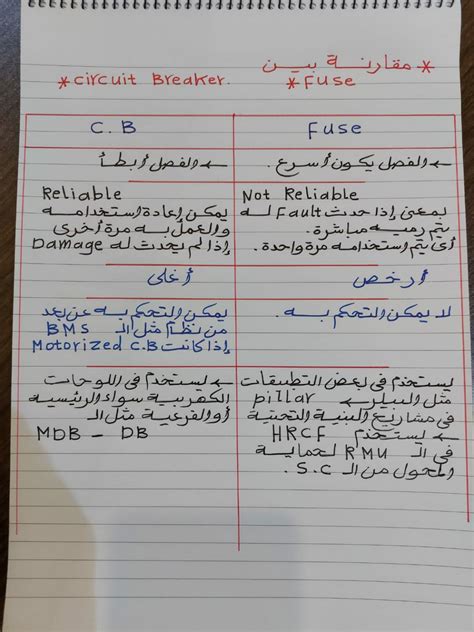 * مقارنة بين
* Fuse
* Circuit Breaker.
Fuse
C.B
← الفصل يكون أسرع.
← الفصل أبطأ
Not Reliable
بمعنى إذا حدث Fault له
يتم رميه مباشرة.
أي يتم استخدامه مرة واحدة.
Reliable
يمكن إعادة استخدامه
والعمل به مرة أخرى
إذا لم يحدث له Damage
أرخص
أغلى
لا يمكن التحكم به.
يمكن التحكم به عن بعد
من نظام مثل الـ BMS
إذا كانت Motorized C.B
يستخدم في بعض التطبيقات
مثل البيلر ← pillar
في مشاريع البنية التحتية
← يستخدم HRCF
في الـ RMU لحماية
المحول من الـ S.C.
← يستخدم في اللوحات
الكهربية سواء الرئيسية
أو الفرعية مثل الـ
MDB - DB